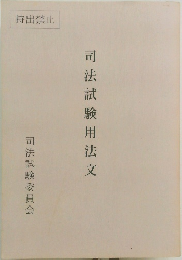 持出禁止
司法試験用法文
司法試験委員会